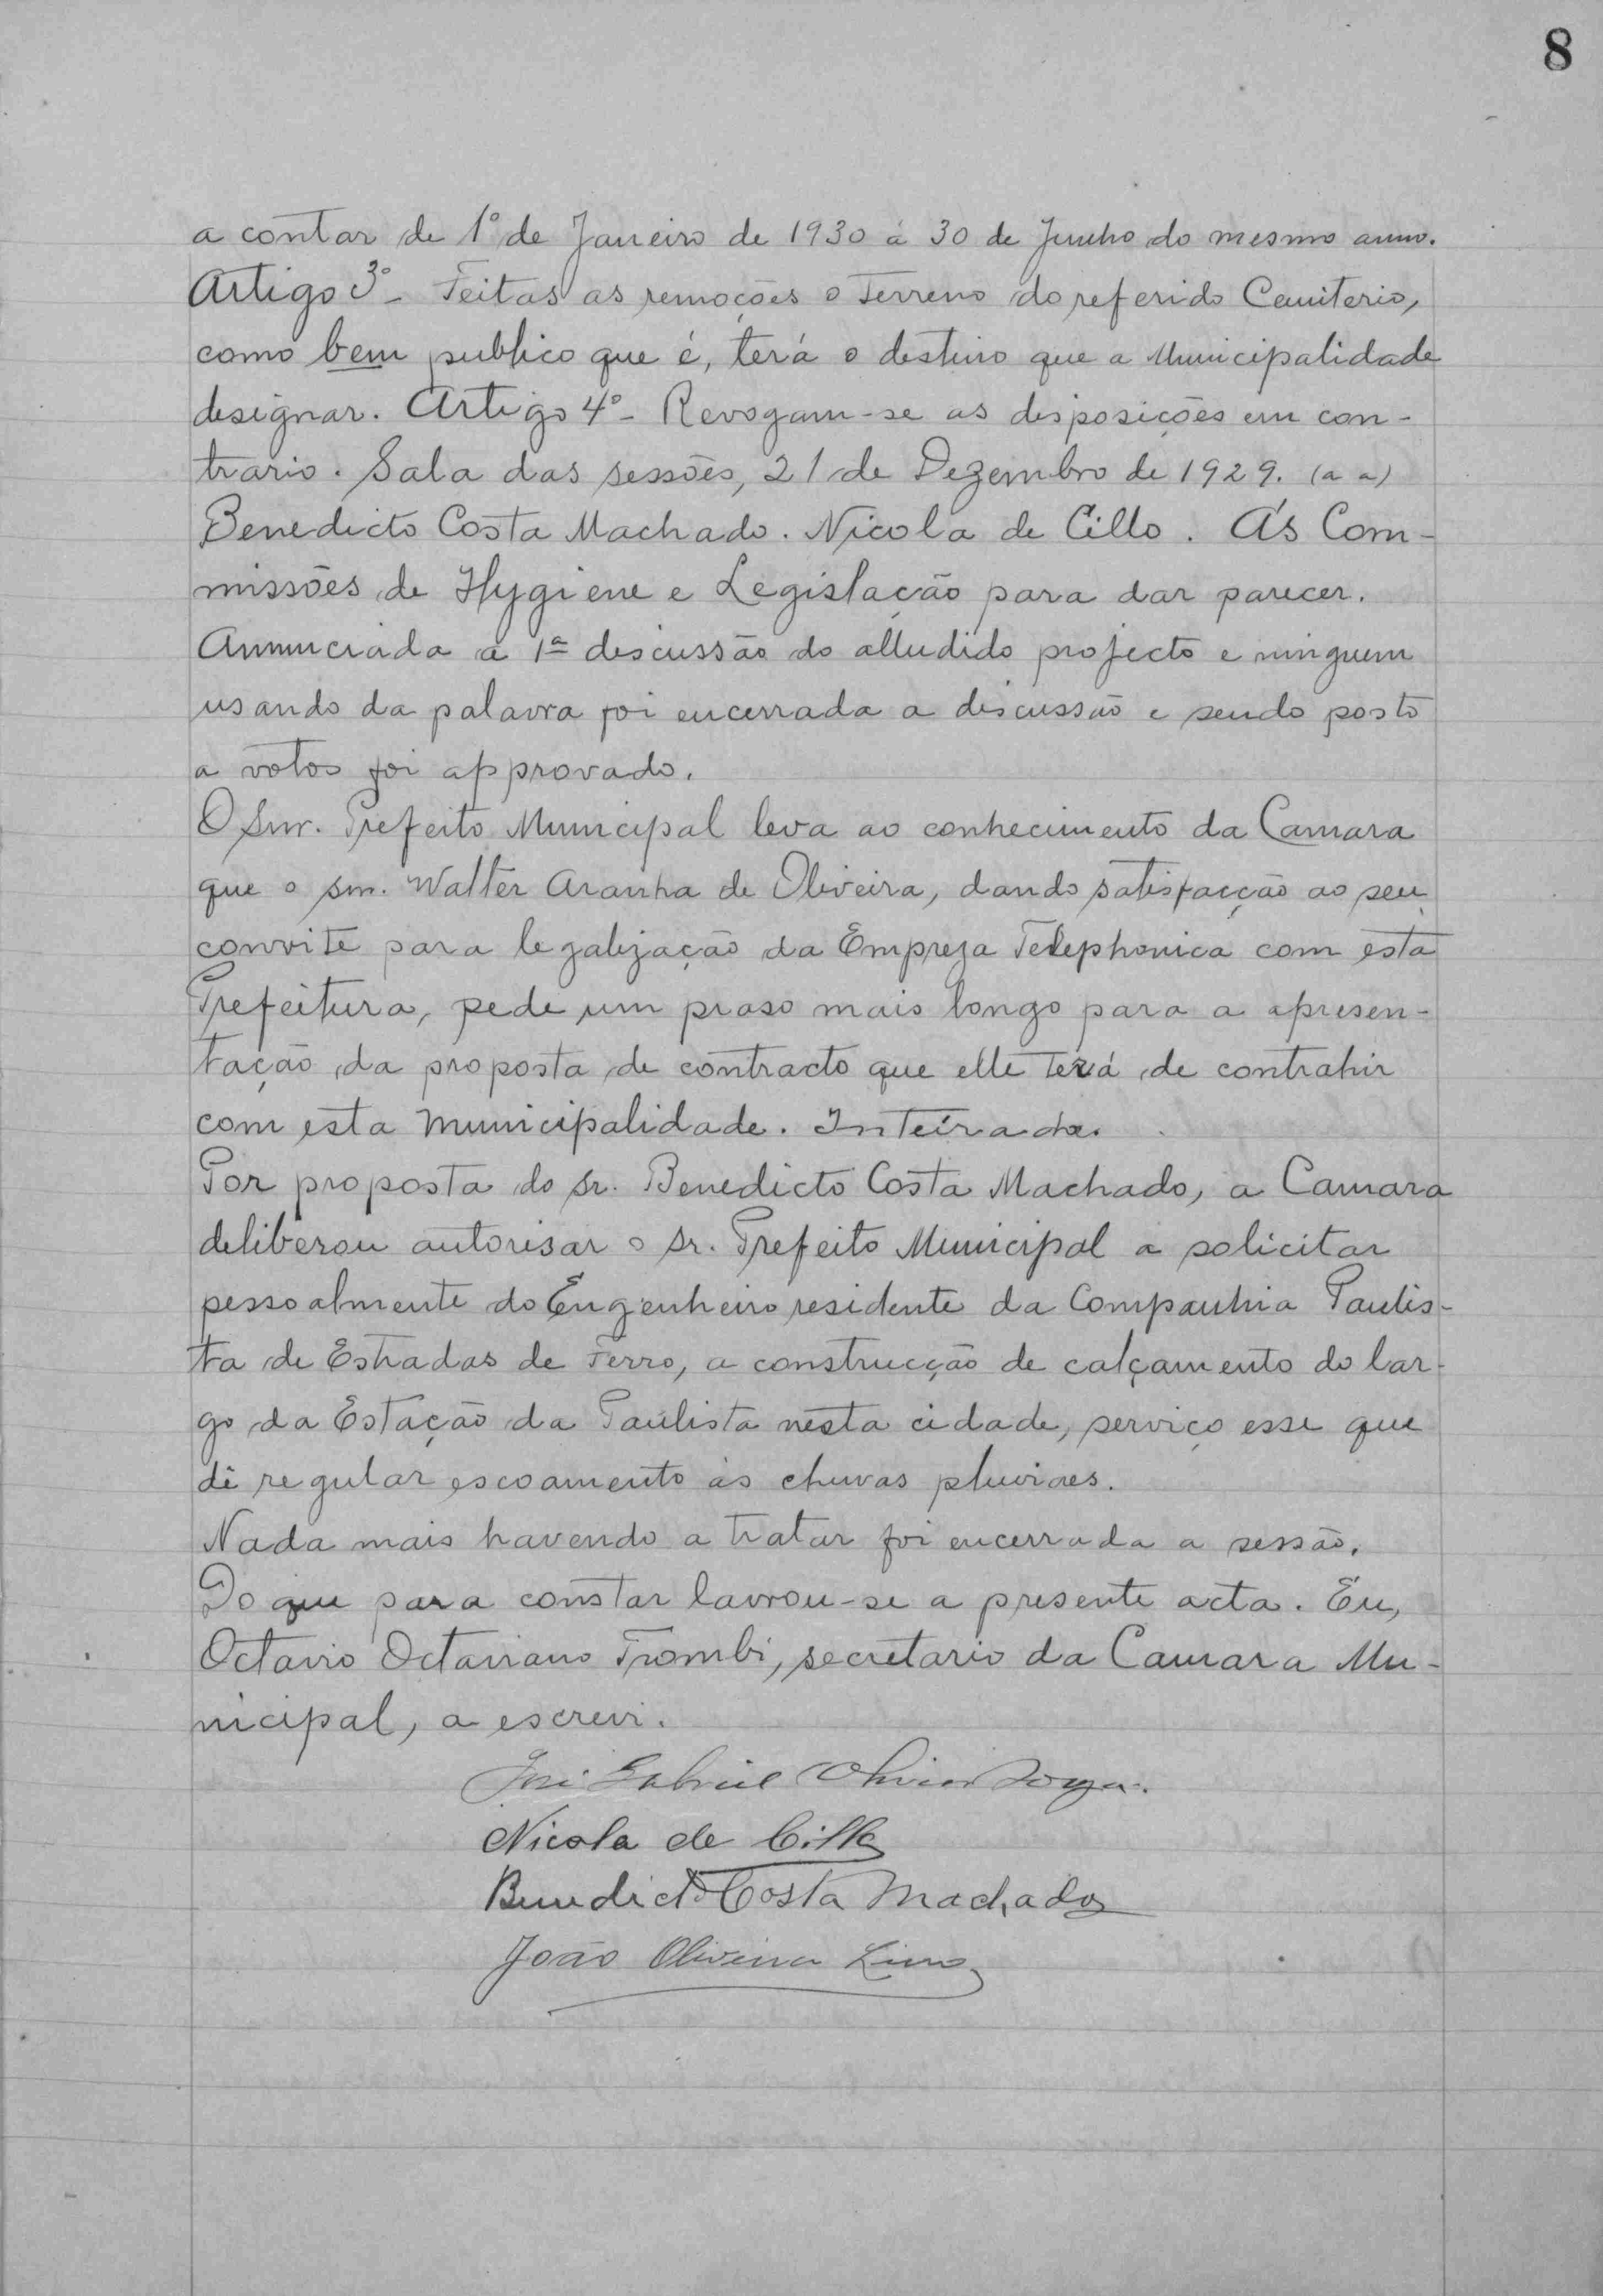 8
a contar de 1º de Janeiro de 1930 á 30 de Junho do mesmo anno.
Artigo 3º - Feitas as remoções o terreno do referido Cemiterio,
como bem publico que é, terá o destino que a Municipalidade
designar. Artigo 4º - Revogam-se as disposições em con-
trario. Sala das sessões, 21 de Dezembro de 1929. (a a)
Benedicto Costa Machado. Nicola de Cillo. Ás Com-
missões de Hygiene e Legislação para dar parecer.
Annunciada a 1ª discussão do alludido projecto e ninguem
usando da palavra foi encerrada a discussão e sendo posto
a votos foi approvado.
O Snr. Prefeito Municipal leva ao conhecimento da Camara
que o snr. Walter Aranha de Oliveira, dando satisfacção ao seu
convite para legalização da Empreza Telephonica com esta
Prefeitura, pede um praso mais longo para a apresen-
tação da proposta de contracto que elle terá de contrahir
com esta Municipalidade. Inteirada.
Por proposta do sr. Benedicto Costa Machado, a Camara
deliberou autorisar o sr. Prefeito Municipal a solicitar
pessoalmente do Engenheiro residente da Companhia Paulis-
ta de Estradas de Ferro, a construcção de calçamento do lar-
go da Estação da Paulista nesta cidade, serviço esse que
dê regular escoamento ás chuvas pluviaes.
Nada mais havendo a tratar foi encerrada a sessão.
Do que para constar lavrou-se a presente acta. Eu,
Octavio Octaviano Trombi, secretario da Camara Mu-
nicipal, a escrevi.
José Gabriel Oliveira
Nicola de Cillo
Benedicto Costa Machado
João Oliveira Lino